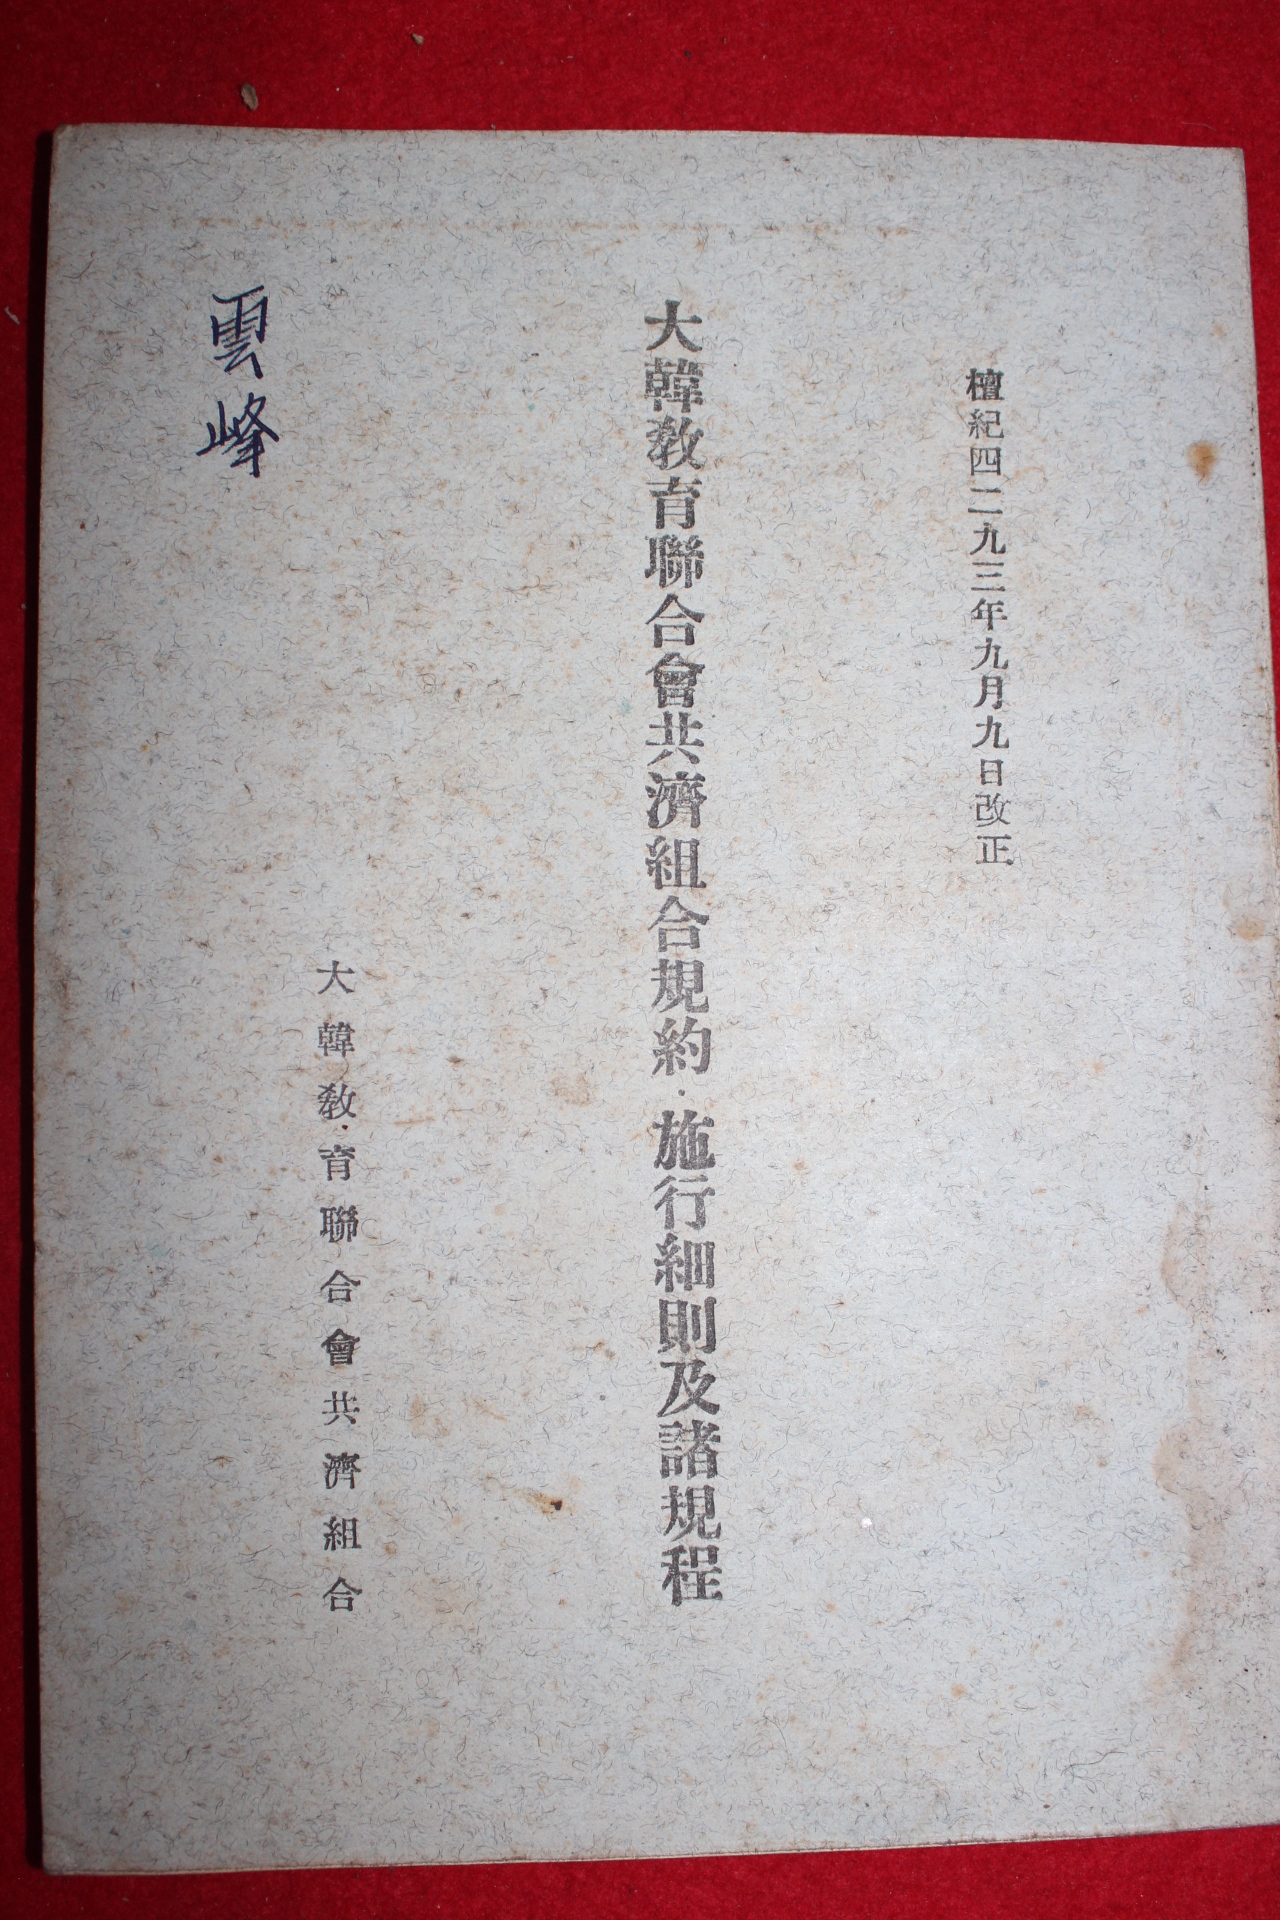 檀紀四二九三年九月九日改正
大韓敎育聯合會共濟組合規約·施行細則及諸規程
大韓敎育聯合會共濟組合
雲峰